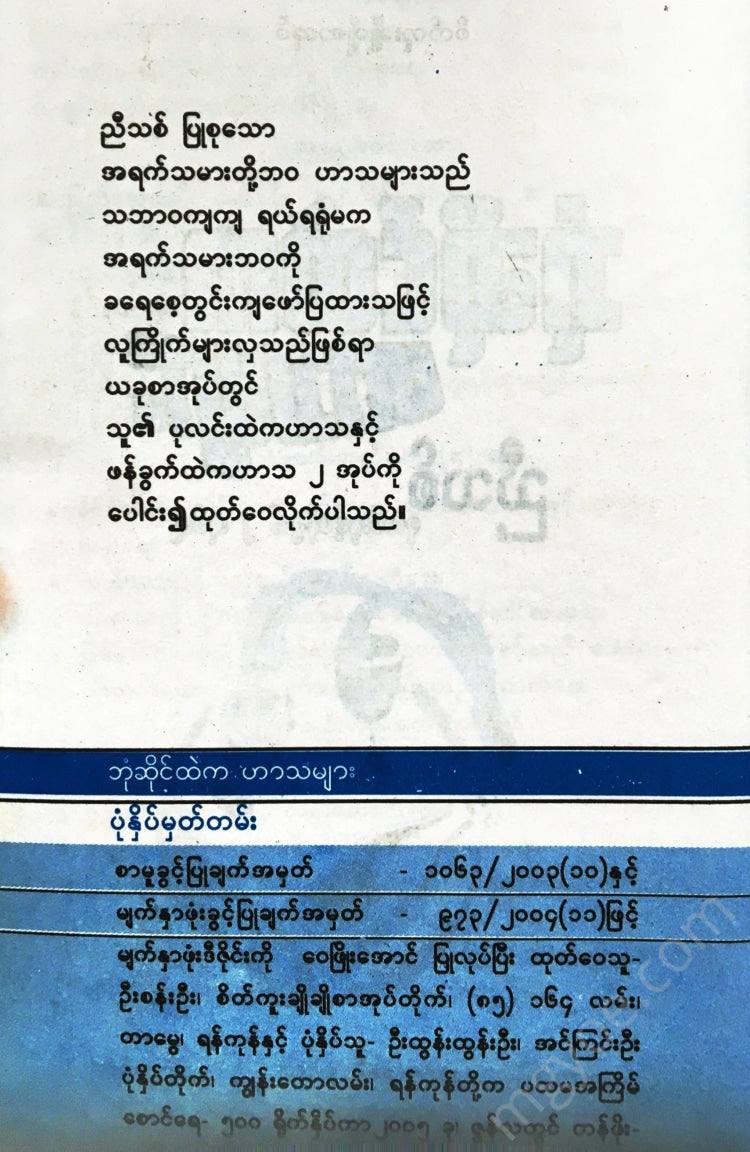 ညီသစ် ပြုစုသော
အရက်သမားတို့ဘဝ ဟာသများသည်
သဘာဝကျကျ ရယ်ရရုံမက
အရက်သမားဘဝကို
ခရေစေ့တွင်းကျဖော်ပြထားသဖြင့်
လူကြိုက်များလှသည်ဖြစ်ရာ
ယခုစာအုပ်တွင်
သူ၏ ပုလင်းထဲကဟာသနှင့်
ဖန်ခွက်ထဲကဟာသ ၂ အုပ်ကို
ပေါင်း၍ထုတ်ဝေလိုက်ပါသည်။
ဘုံဆိုင်ထဲက ဟာသများ
ပုံနှိပ်မှတ်တမ်း
စာမူခွင့်ပြုချက်အမှတ် - ၁၀၆၃/၂၀၀၃(၁၀)နှင့်
မျက်နှာဖုံးခွင့်ပြုချက်အမှတ် - ၉၇၃/၂၀၀၄(၁၁)ဖြင့်
မျက်နှာဖုံးဒီဇိုင်းကို ဝေဖြိုးအောင် ပြုလုပ်ပြီး ထုတ်ဝေသူ-
ဦးစန်းဦး၊ စိတ်ကူးချိုချိုစာအုပ်တိုက်၊ (၈၅) ၁၆၄ လမ်း၊
တာမွေ၊ ရန်ကုန်နှင့် ပုံနှိပ်သူ- ဦးထွန်းထွန်းဦး၊ အင်ကြင်းဦး
ပုံနှိပ်တိုက်၊ ကျွန်းတောလမ်း၊ ရန်ကုန်တို့က ပထမအကြိမ်
စောင်ရေ- ၅၀၀ ရိုက်နှိပ်ကာ ၂၀၀၅ ခု၊ ဇွန်လတွင် တန်ဖိုး-